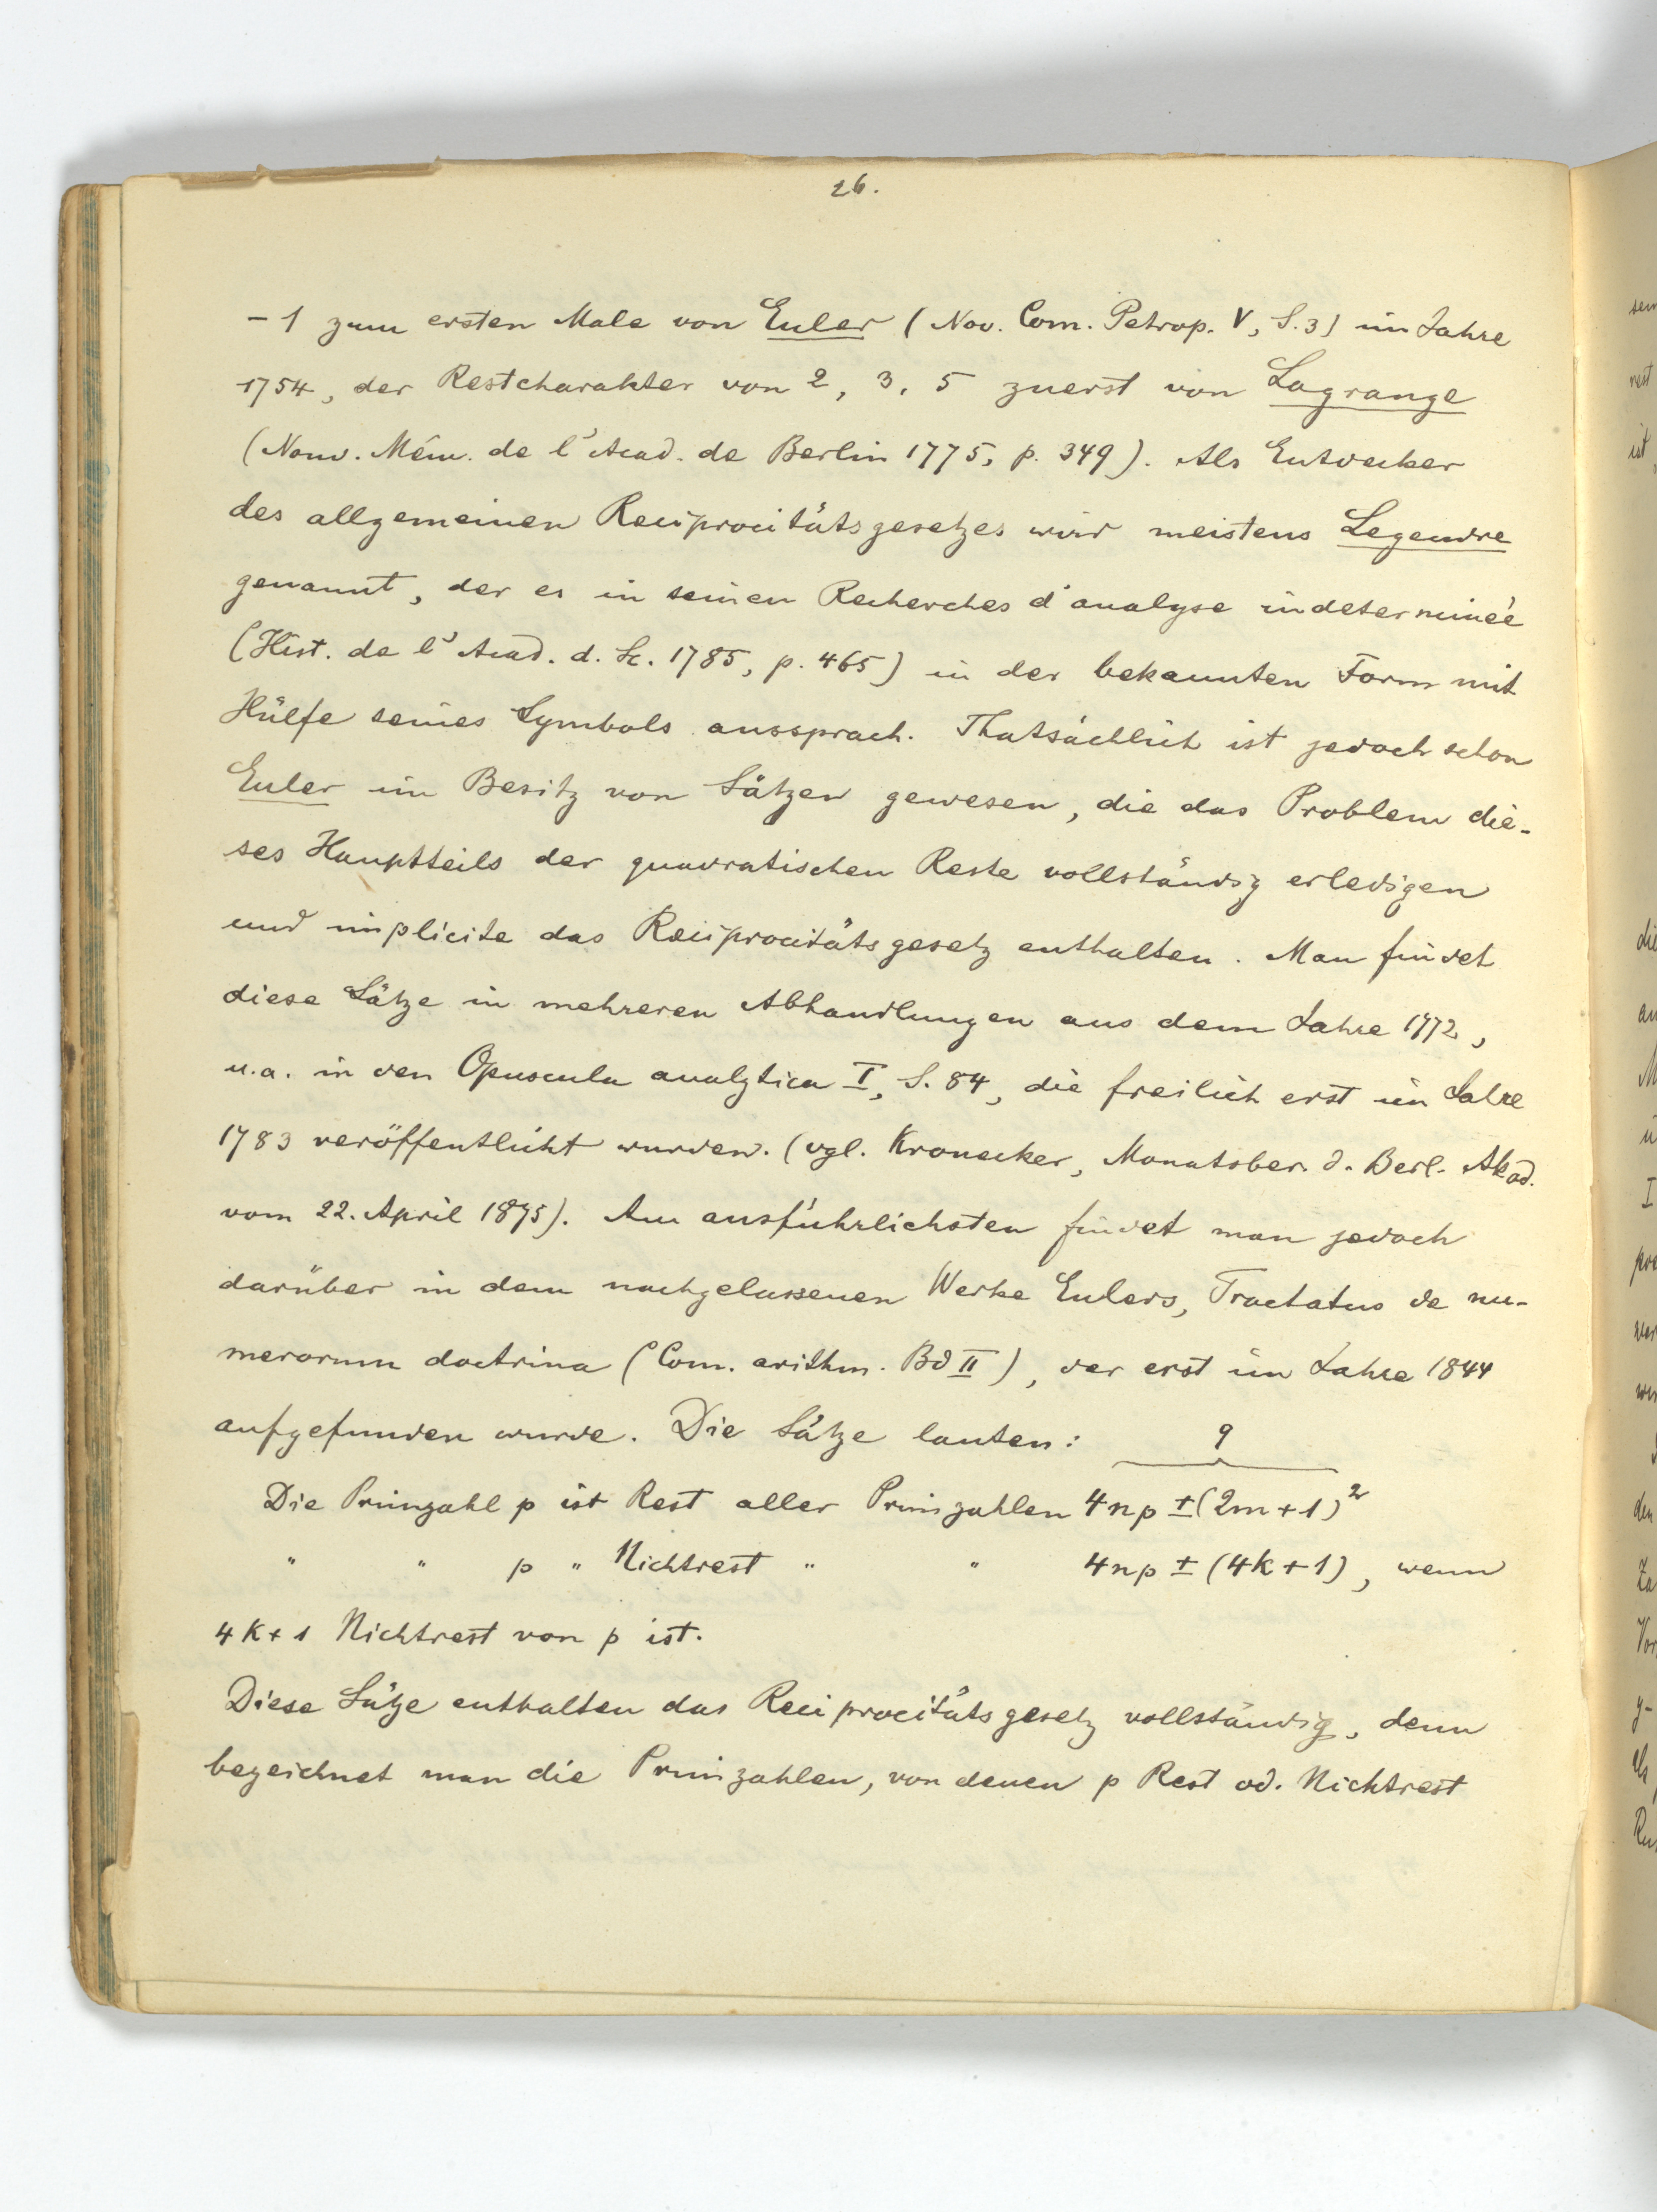 26.
- 1 zum ersten Male von Euler (Nov. Com. Petrop. V, S. 3) im Jahre
1754, der Restcharakter von 2, 3, 5 zuerst von Lagrange
(Nouv. Mém. de l'Acad. de Berlin 1775, p. 349). Als Entdecker
des allgemeinen Reciprocitätsgesetzes wird meistens Legendre
genannt, der es in seinen Recherches d'analyse indeterminée
(Hist. de l'Acad. d. Sc. 1785, p. 465) in der bekannten Form mit
Hülfe seines Symbols aussprach. Thatsächlich ist jedoch schon
Euler im Besitz von Sätzen gewesen, die das Problem die-
ses Hauptteils der quadratischen Reste vollständig erledigen
und implicite das Reciprocitätsgesetz enthalten. Man findet
diese Sätze in mehreren Abhandlungen aus dem Jahre 1772,
u.a. in den Opuscula analytica I, S. 84, die freilich erst im Jahre
1783 veröffentlicht wurden. (vgl. Kronecker, Monatsber. d. Berl. Akad.
vom 22. April 1875). Am ausführlichsten findet man jedoch
darüber in dem nachgelassenen Werke Eulers, Tractatus de nu-
merorum doctrina (Com. arithm. Bd II), der erst im Jahre 1844
aufgefunden wurde. Die Sätze lauten: q
Die Primzahl p ist Rest aller Primzahlen 4np ± (2m+1)²
" " p " Nichtrest " " 4np ± (4k+1), wenn
4k+1 Nichtrest von p ist.
Diese Sätze enthalten das Reciprocitätsgesetz vollständig, denn
bezeichnet man die Primzahlen, von denen p Rest od. Nichtrest